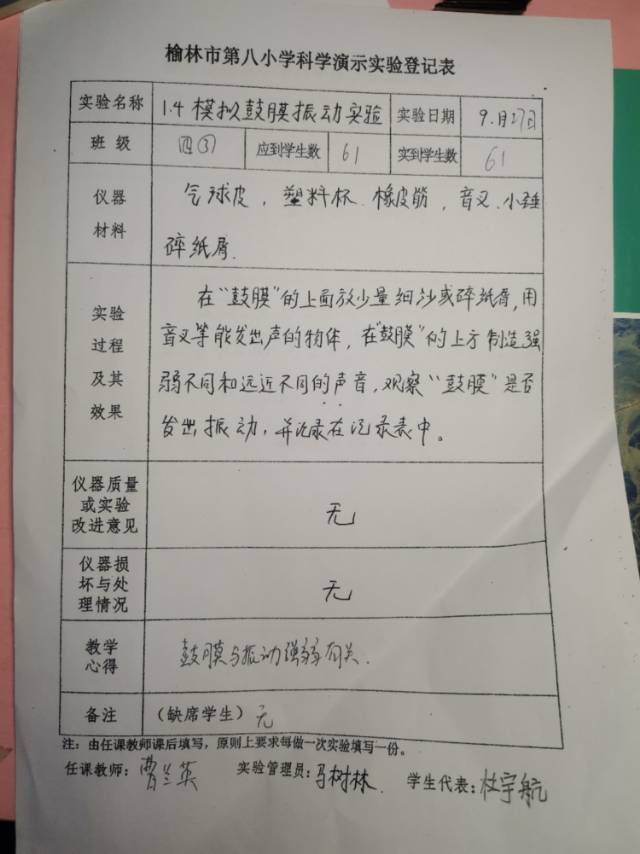 榆林市第八小学科学演示实验登记表
实验名称 1.4 模拟鼓膜振动实验 实验日期 9.月27日
班 级 四③ 应到学生数 61 实到学生数 61
仪器 气球皮，塑料杯、橡皮筋，音叉、小锤
材料 碎纸屑.
实验 在“鼓膜”的上面放少量细沙或碎纸屑，用
过程 音叉等能发出声的物体，在“鼓膜”的上方制造强
及其 弱不同和远近不同的声音，观察“鼓膜”是否
效果 发出振动，并记录在记录表中。
仪器质量
或实验
改进意见
无
仪器损
坏与处
理情况
无
教学
心得
鼓膜与振动强弱有关.
备注 （缺席学生）无
注：由任课教师课后填写，原则上要求每做一次实验填写一份。
任课教师：曹兰英 实验管理员：马树林 学生代表：杜宇航